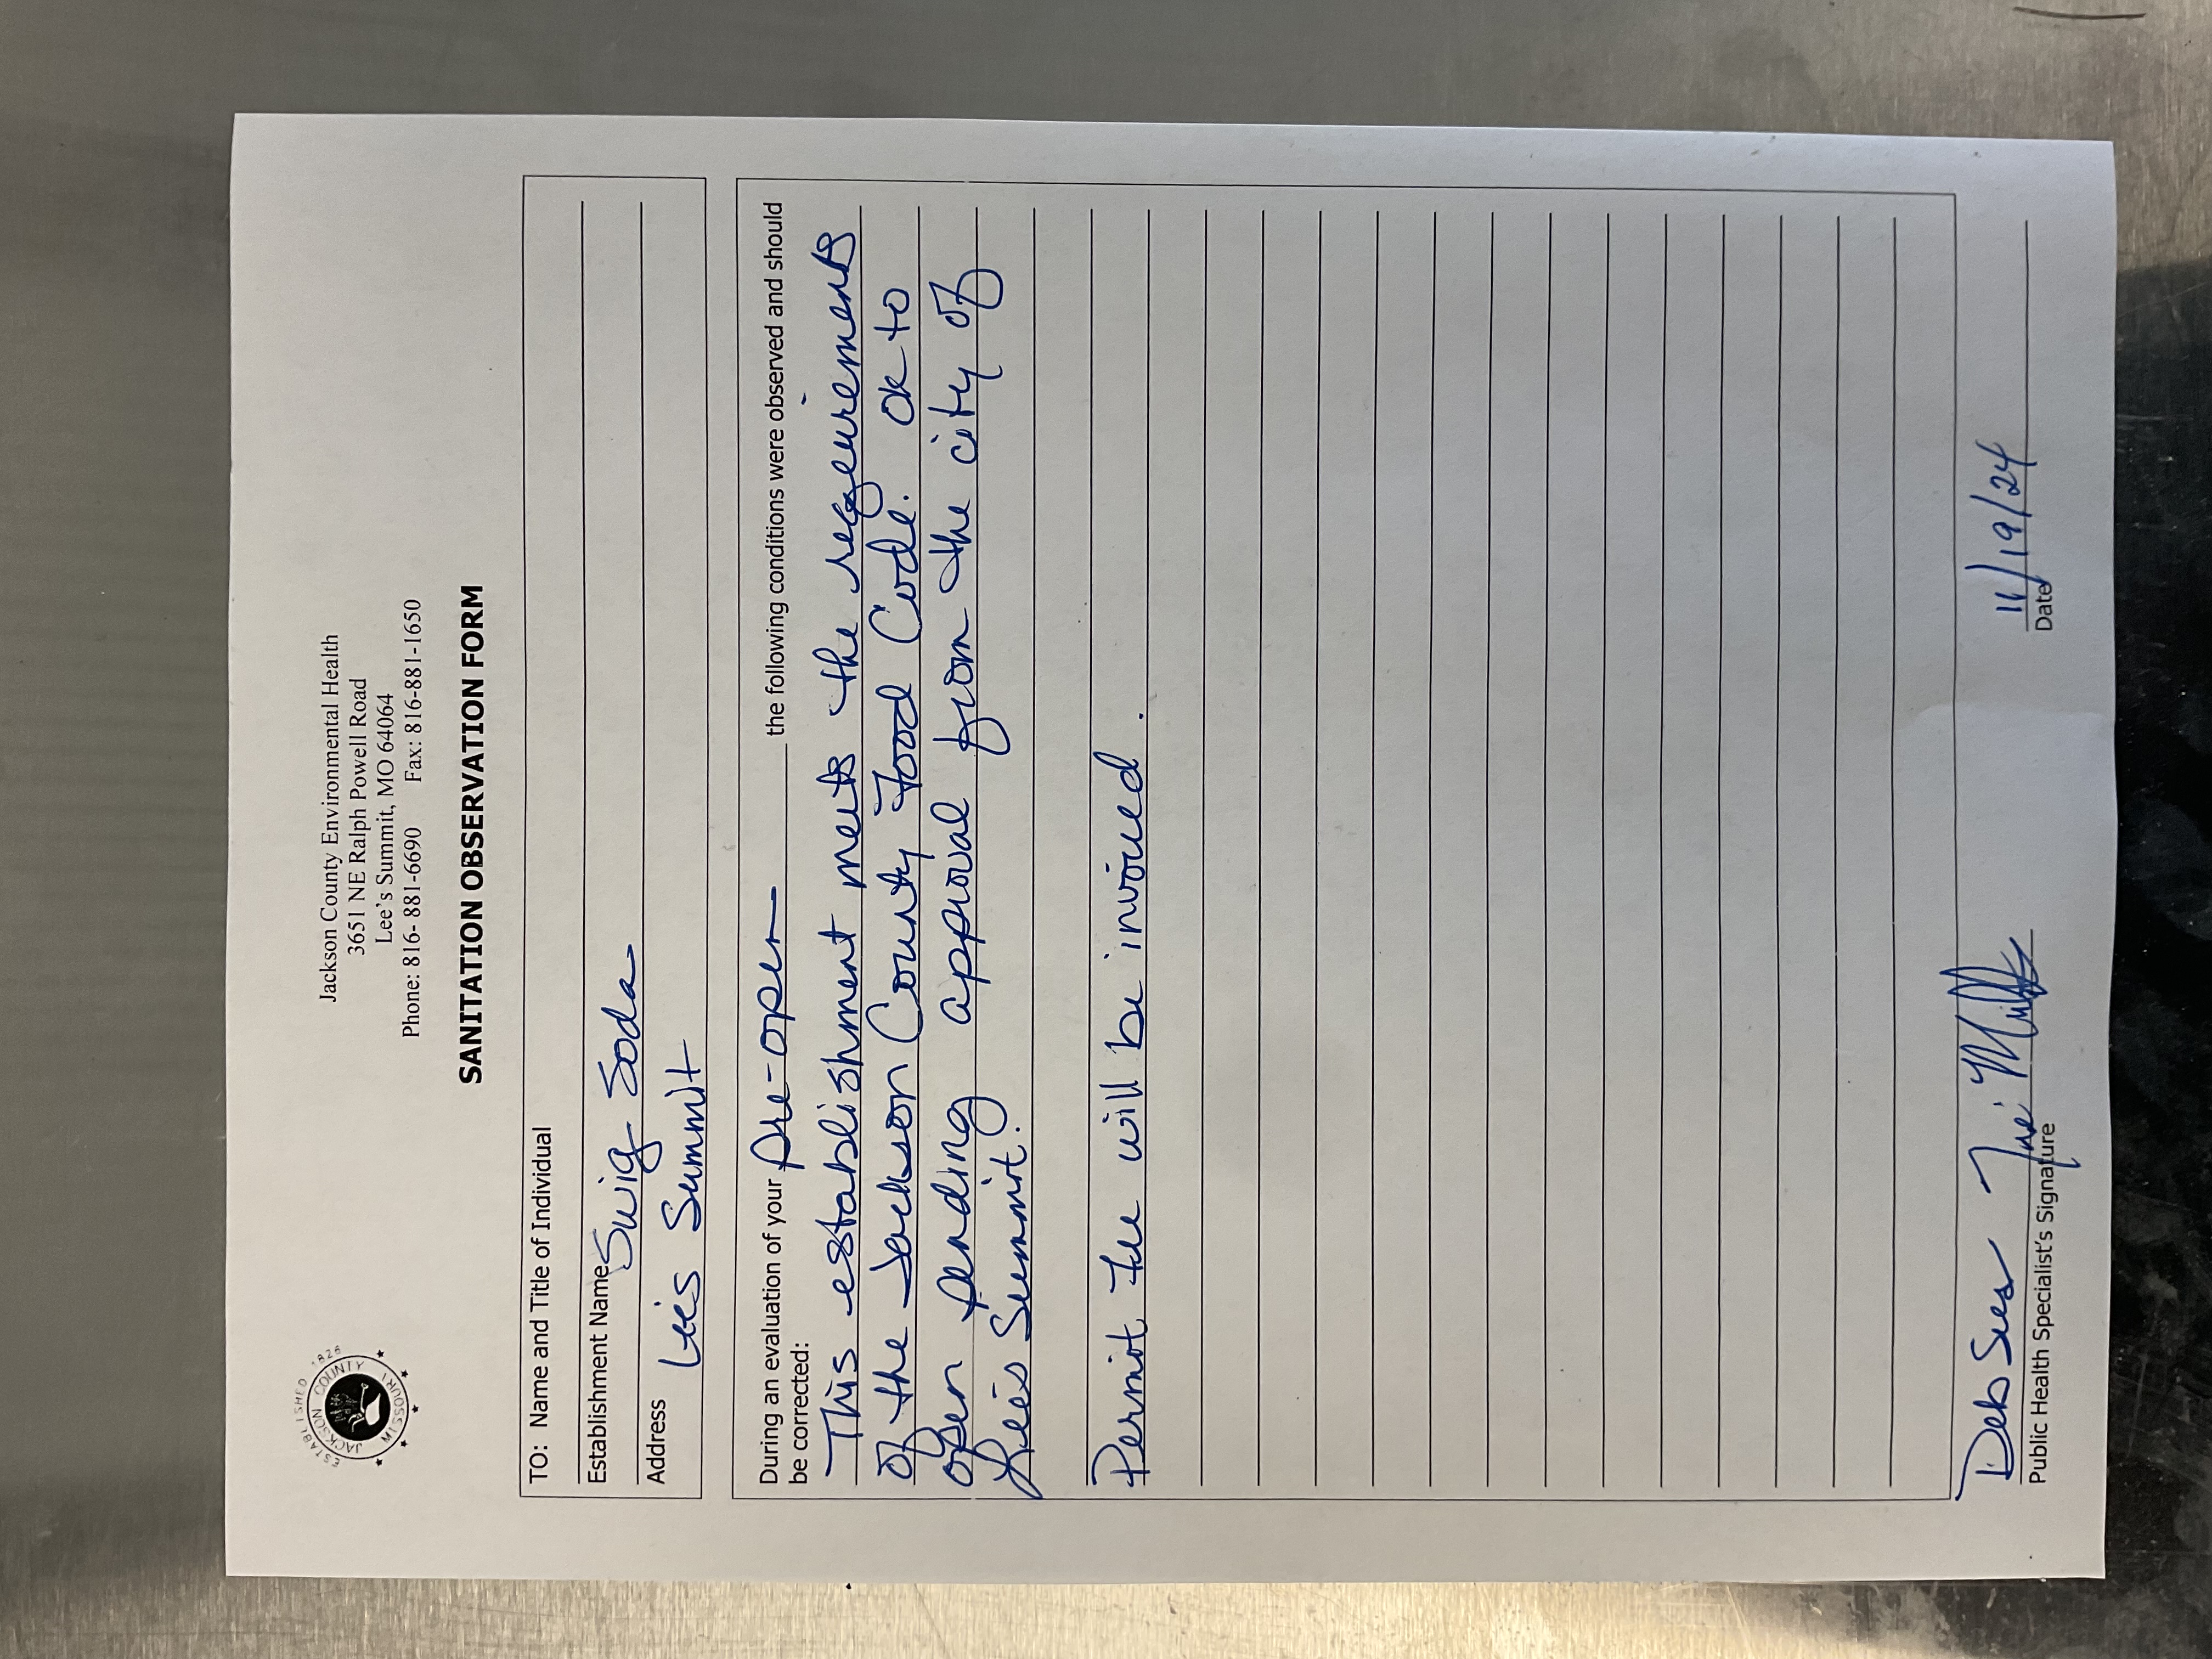 ESTABLISHED 1826
JACKSON COUNTY
MISSOURI
Jackson County Environmental Health
3651 NE Ralph Powell Road
Lee's Summit, MO 64064
Phone: 816- 881-6690 Fax: 816-881-1650
SANITATION OBSERVATION FORM
TO: Name and Title of Individual
Establishment Name Swig Soda
Address Lee's Summit
During an evaluation of your pre-open the following conditions were observed and should
be corrected:
This establishment meets the requirements
of the Jackson County Food Code. OK to
open pending approval from the city of
Lee's Summit.
Permit fee will be invoiced.
Deb Sees
Public Health Specialist's Signature
11/19/24
Date